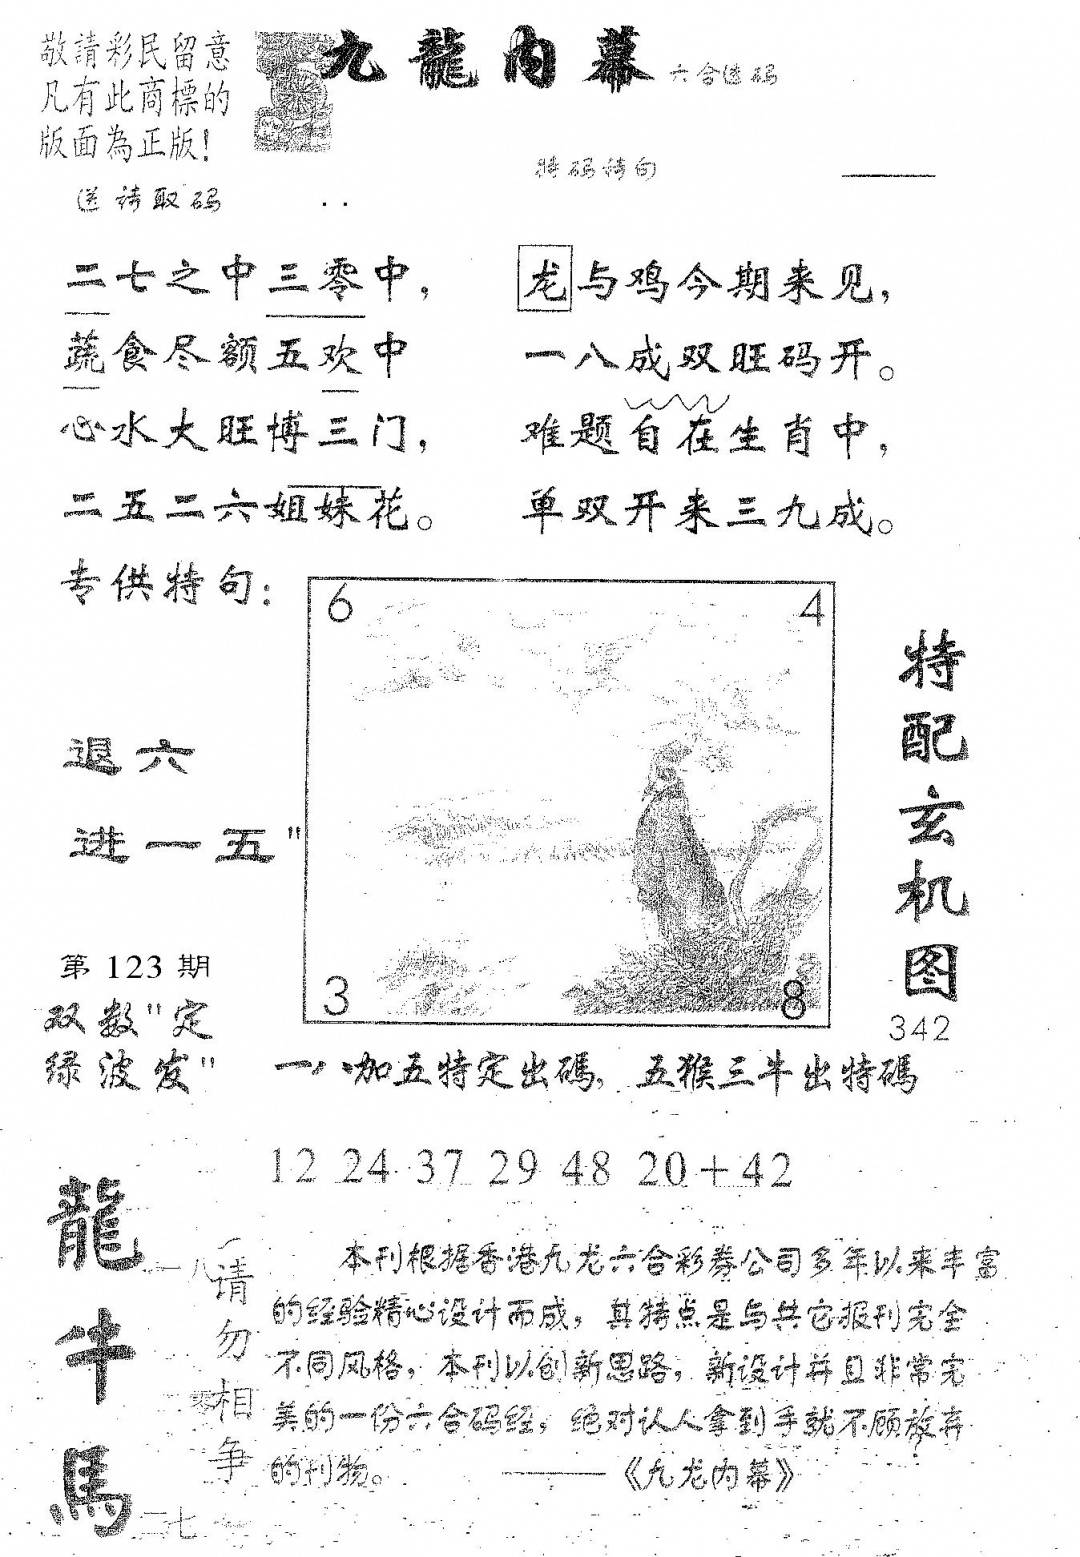 敬請彩民留意
凡有此商標的
版面為正版!
九龍内幕 六合送码
特码诗句
送诗取码
二七之中三零中，
蔬食尽额五欢中
心水大旺博三门，
二五二六姐妹花。
龙与鸡今期来见，
一八成双旺码开。
难题自在生肖中，
单双开来三九成。
专供特句:
退六
进一五"
6
4
3
8
特配玄机图
342
第123期
双数"定
绿波发"
一八加五特定出碼, 五猴三牛出特碼
12 24 37 29 48 20+42
龍牛馬
一八
零
二七
请勿相争
本刊根据香港九龙六合彩券公司多年以来丰富
的经验精心设计而成，其特点是与其它报刊完全
不同风格，本刊以创新思路，新设计并且非常完
美的一份六合码经，绝对认人拿到手就不顾放弃
的刊物。 ———《九龙内幕》